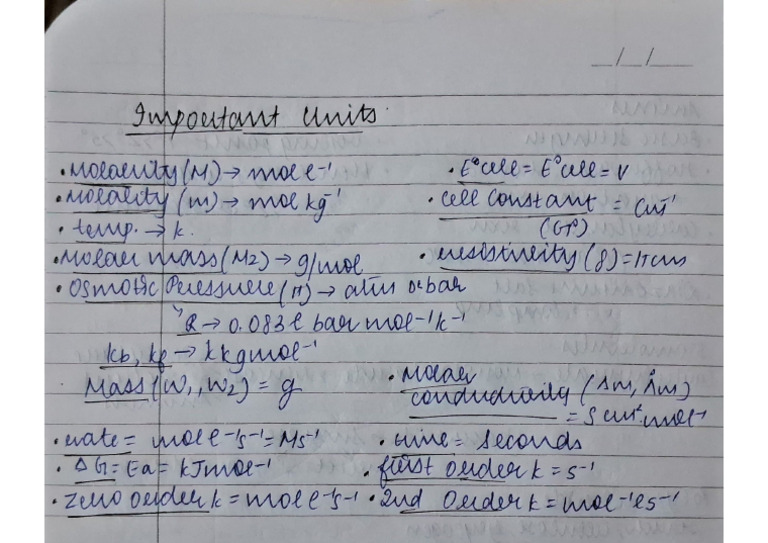 __/__/____
Important Units
• Molarity (M) → mol l⁻¹ • E°cell = E°cell = V
• Molality (m) → mol kg⁻¹ • cell constant = cm⁻¹
• temp. → K. (G*)
• Molar mass (M2) → g/mol • resistivity (ρ) = Ω cm
• Osmotic Pressure (π) → atm or bar
R → 0.083 l bar mol⁻¹ k⁻¹
kb, kf → k kg mol⁻¹
Mass (W₁, W₂) = g • Molar conductivity (Λm, Λ°m)
= S cm² mol⁻¹
• rate = mol l⁻¹s⁻¹ = Ms⁻¹ • time = seconds
• ΔG = Ea = kJmol⁻¹ • first order k = s⁻¹
• zero order k = mol l⁻¹s⁻¹ • 2nd order k = mol⁻¹ l s⁻¹